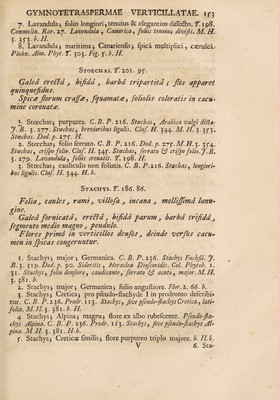 GYMNOTETRASPERMAE VERTICILLATAE. 153
7. Lavandula, folio longiori, tenuius & elegantius dissecto. T. 198.
Commelin. Rar. 27. Lavandula, Canarica, foliis tenuius divisis. M. H.
3. 353. b. H.
8. Lavandula; maritima; Canariensis; spicâ multiplici, cæruleâ.
Plukn. Alm. Phyt. T. 303. Fig. 5. b. H.
STOECHAS. T. 201. 95.
Galeâ erectâ, bifidâ, barbâ tripartitâ; flos apparet
quinquefidus.
Spicæ florum crassæ, squamatæ, foliolis coloratis in cacu-
mine coronatæ.
1. Stoechas; purpurea. C. B. P. 216. Stoechas, Arabica vulgò dicta.
J. B. 3. 277. Stoechas, brevioribus ligulis. Cluf. H. 344. M. H. 3. 353.
Stoechas. Dod. p. 275. H.
2. Stoechas; folio serrato. C. B. P. 216. Dod. p. 275. M. H. 3. 354.
Stoechas, crispo folio. Cluf. H. 345. Stoechas, serrata & crispo folio. J. B.
3. 279. Lavandula, foliis crenatis. T. 198. H.
3. Stoechas; cauliculis non foliatis. C. B. P. 216. Stoechas, longiori-
bus ligulis. Cluf. H. 344. H. b.
STACHYS. T. 186. 86.
Folia, caules, rami, villosa, incana, mollissimâ lanu-
gine.
Galeâ fornicatâ, erectâ, bifidâ parum, barbâ trifidâ,
segmento medio magno, pendulo.
Flores primò in verticillos densos, deinde versus cacu-
men in spicas congeruntur.
1. Stachys; major; Germanica. C. B. P. 236. Stachys Fuchsii. J.
B. 3. 319. Dod. p. 90. Sideritis, Heraclea Dioscoridis. Col. Phytob. t.
31. Stachys, folio densiore, candicante, serrato & acuto, major. M. H.
3. 381. b.
2. Stachys; major; Germanica; folio angustiore. Flor. 2. 66. b.
3. Stachys; Cretica; pro pseudo-stachyde I in prodromo describi-
tur. C. B. P. 236. Prodr. 113. Stachys, sive pseudo-stachys Cretica, lati-
folia. M. H. 3. 381. b. H.
4. Stachys; Alpina; magna; flore ex albo rubescente. Pseudo-sta-
chys Alpina. C. B. P. 236. Prodr. 113. Stachys, sive pseudo-stachys Al-
pina. M. H. 3. 381. H. b.
5. Stachys; Creticæ similis; flore purpureo triplo majore. b. H. b.
V 6. Sta-